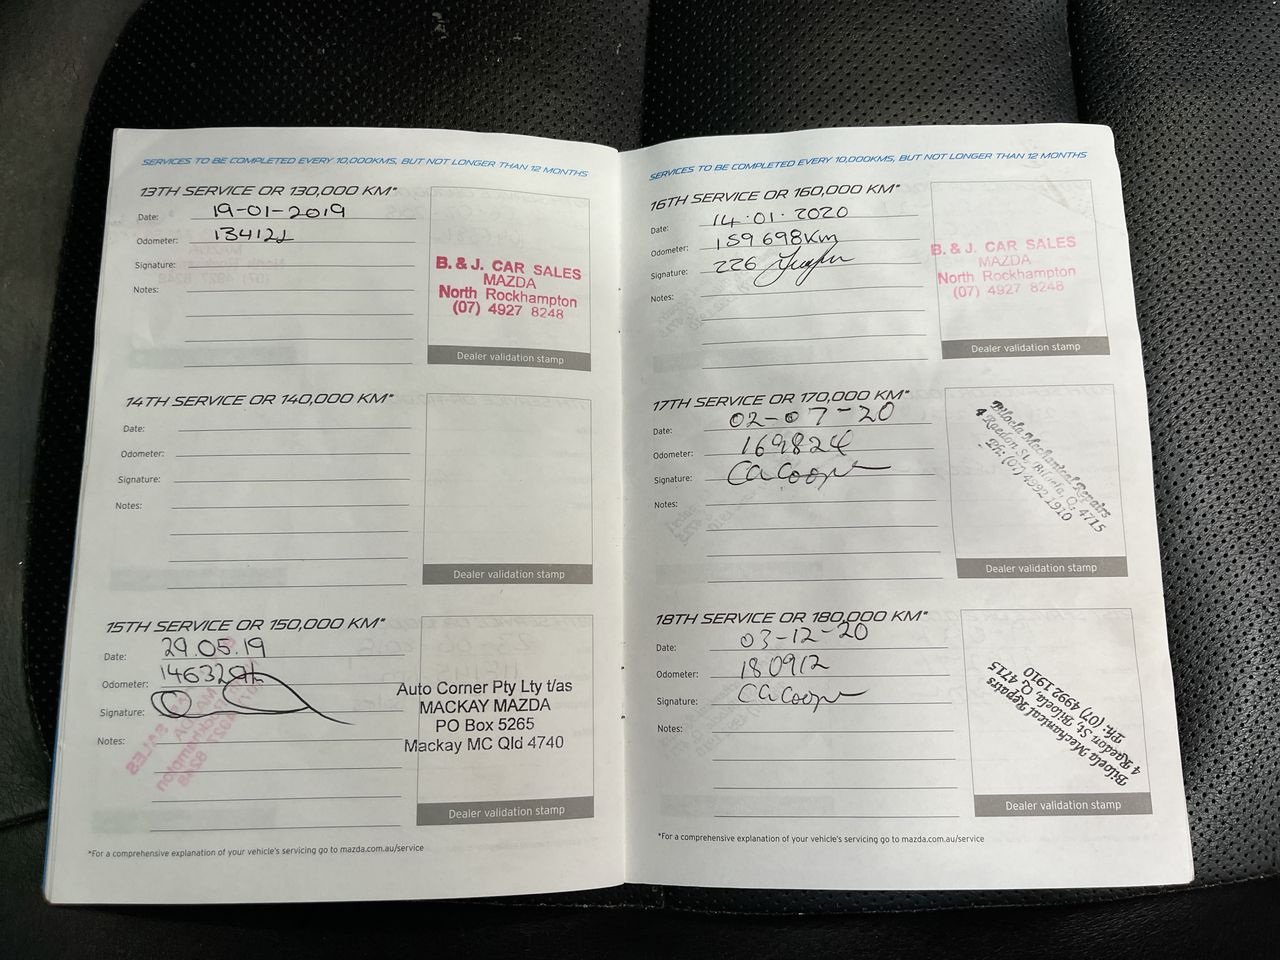 SERVICES TO BE COMPLETED EVERY 10,000KMS, BUT NOT LONGER THAN 12 MONTHS
13TH SERVICE OR 130,000 KM*
Date: 19-01-2019
Odometer:
Signature:
Notes:
B. & J. CAR SALES
MAZDA
North Rockhampton
(07) 4927 8248
Dealer validation stamp
14TH SERVICE OR 140,000 KM*
Date:
Odometer:
Signature:
Notes:
Dealer validation stamp
15TH SERVICE OR 150,000 KM*
Date: 29.05.19
Odometer:
Signature:
Notes:
Auto Corner Pty Lty t/as
MACKAY MAZDA
PO Box 5265
Mackay MC Qld 4740
Dealer validation stamp
*For a comprehensive explanation of your vehicle's servicing go to mazda.com.au/service
SERVICES TO BE COMPLETED EVERY 10,000KMS, BUT NOT LONGER THAN 12 MONTHS
16TH SERVICE OR 160,000 KM*
Date: 14.01.2020
Odometer: 159698Km
Signature: 226
Notes:
B. & J. CAR SALES
MAZDA
North Rockhampton
(07) 4927 8248
Dealer validation stamp
17TH SERVICE OR 170,000 KM*
Date: 02-07-20
Odometer: 169824
Signature: CA Cooper
Notes:
Biloela Mechanical Repairs
4 Raedon St, Biloela, Q, 4715
Ph: (07) 4992 1910
Dealer validation stamp
18TH SERVICE OR 180,000 KM*
Date: 03-12-20
Odometer: 180912
Signature: CA Cooper
Notes:
Biloela Mechanical Repairs
4 Raedon St, Biloela, Q, 4715
Ph: (07) 4992 1910
Dealer validation stamp
*For a comprehensive explanation of your vehicle's servicing go to mazda.com.au/service